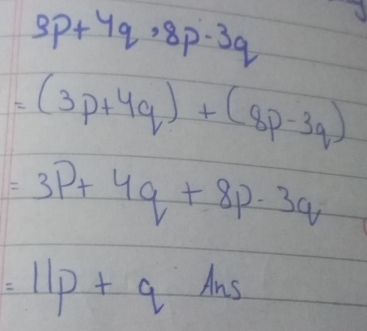 3p+4q, 8p-3q
= (3p+4q) + (8p-3q)
= 3P+ 4q + 8p - 3q
= 11p + q Ans